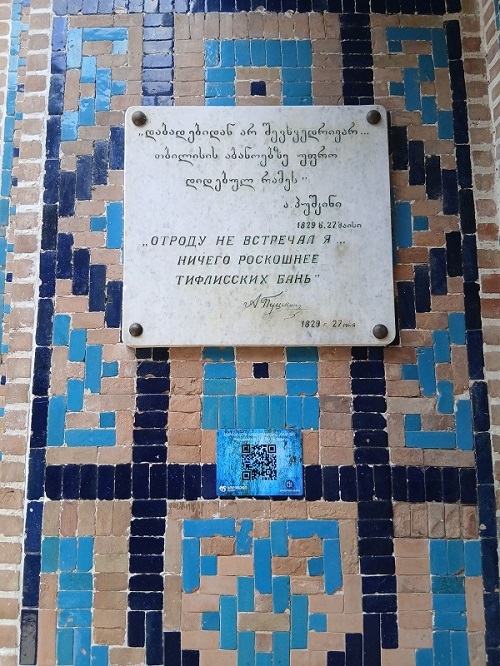 „დაბადებიდან არ შევხვედრივარ...
თბილისის აბანოებზე უფრო
დიდებულ რამეს"
ა. პუშკინი
1829 წ. 27 მაისი
„ОТРОДУ НЕ ВСТРЕЧАЛ Я...
НИЧЕГО РОСКОШНЕЕ
ТИФЛИССКИХ БАНЬ"
А Пушкин
1829 г. 27 мая